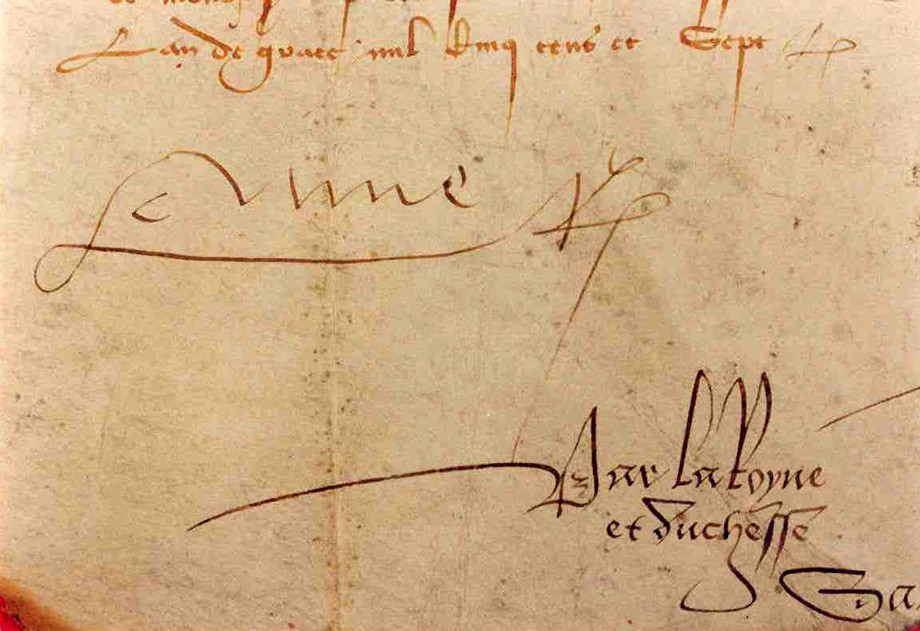 Lan de grace mil cinq cens et Sept
Anne
Par la Royne
et duchesse
Ga